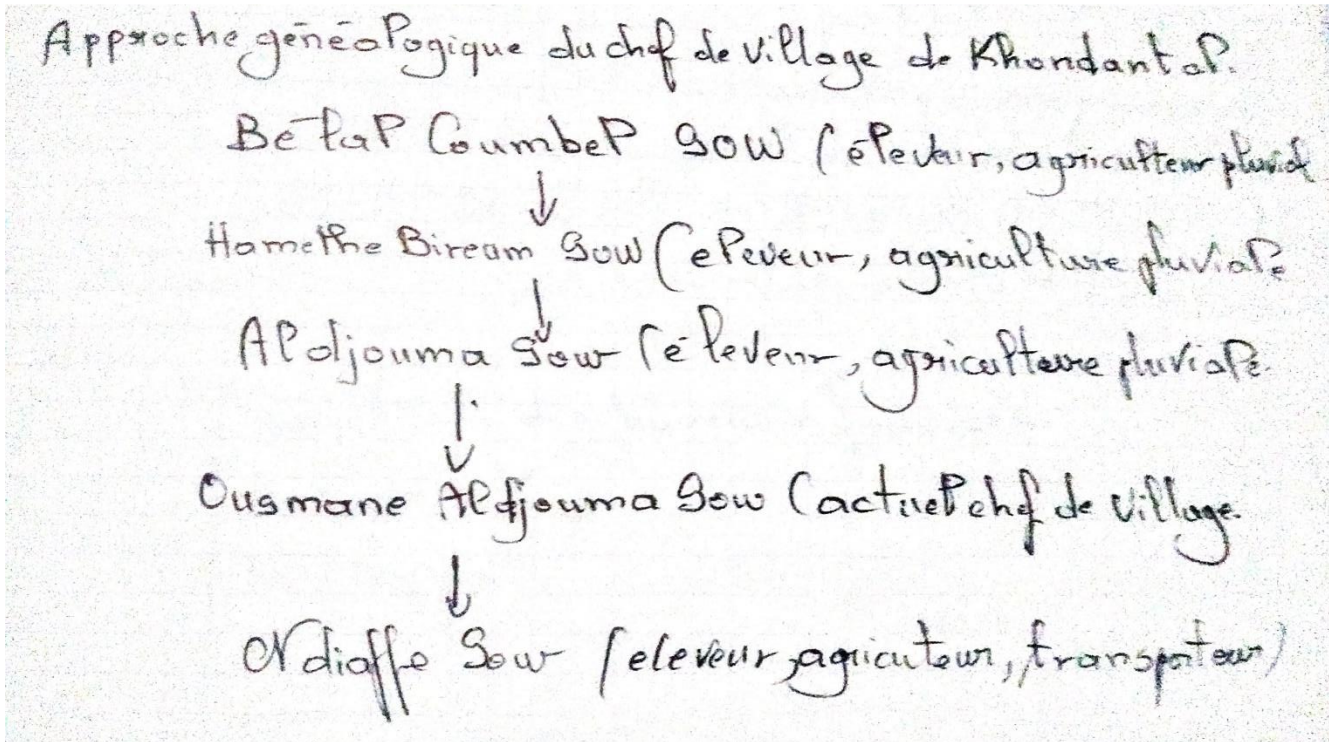 Approche généalogique du chef de village de Khondantal.
Bélal Coumbel Sow (éleveur, agriculteur pluvial
Hamethe Biream Sow (eleveur, agriculture pluviale
Aldjouma Sow (éleveur, agriculture pluviale.
Ousmane Aldjouma Sow (actuel chef de village.
Ndiaffe Sow (eleveur, agricuteur, transporteur)